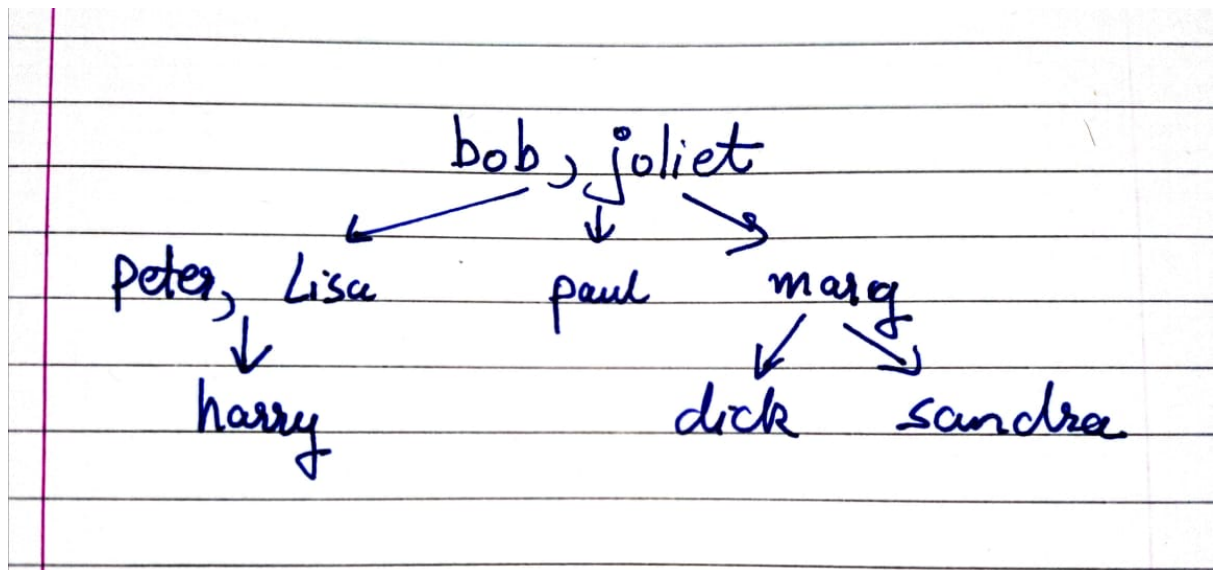 bob, joliet
peter, Lisa paul marg
harry dick sandra